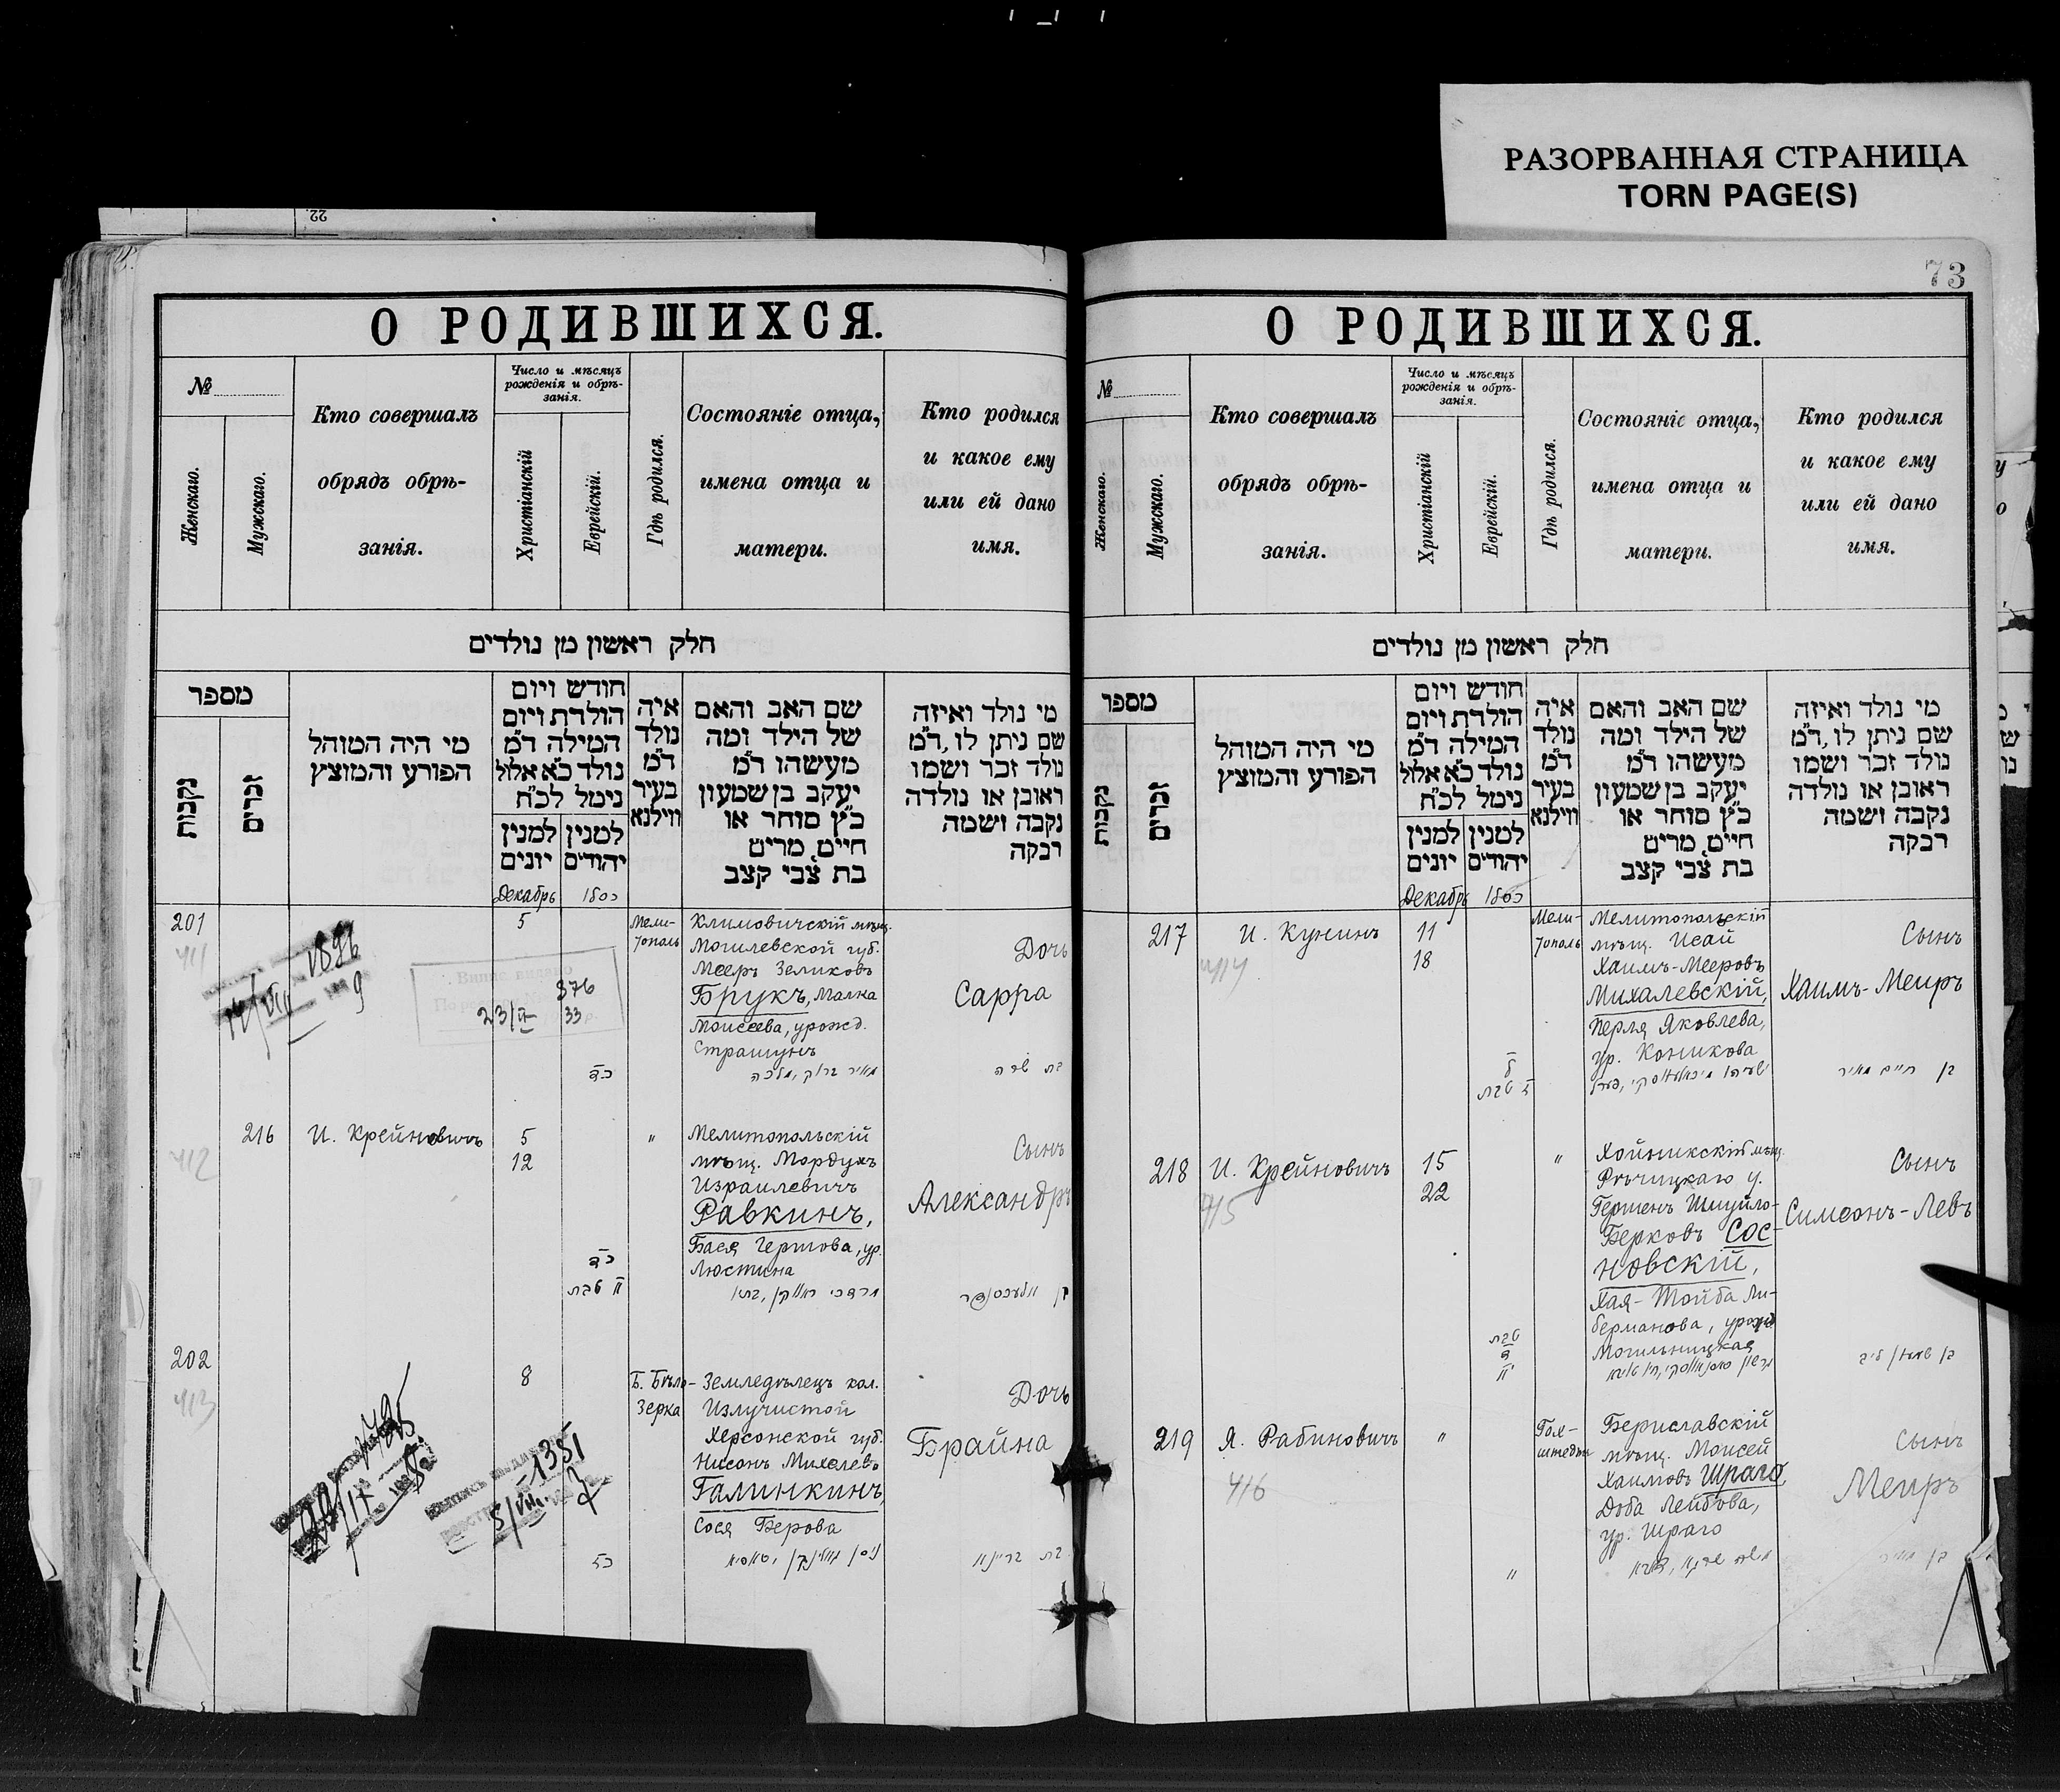 РАЗОРВАННАЯ СТРАНИЦА
TORN PAGE(S)
22
73
О РОДИВШИХСЯ.
№
Женскаго.
Мужскаго.
Кто совершалъ
обрядъ обрѣ-
занія.
Число и мѣсяцъ
рожденія и обрѣ-
занія.
Христіанскій
Еврейскій.
Гдѣ родился.
Состояніе отца,
имена отца и
матери.
Кто родился
и какое ему
или ей дано
имя.
חלק ראשון מן נולדים
מספר
נקבות
זכרים
מי היה המוהל
הפורע והמוצץ
חודש ויום
הולדת ויום
המילה ד״מ
נולד כ״א אלול
נימל לכ״ח
למנין
יונים
למנין
יהודים
איה
נולד
ד״מ
בעיר
ווילנא
שם האב והאם
של הילד ומה
מעשהו ד״מ
יעקב בן שמעון
כ״ץ סוחר או
חייט, מרים
בת צבי קצב
מי נולד ואיזה
שם ניתן לו, ד״מ
נולד זכר ושמו
ראובן או נולדה
נקבה ושמה
רבקה
Декабрь
כסלו
201
411
5
Мели-
тополь
Климовичскій мѣщ.
Могилевской губ.
Мееръ Зеликовъ
Брукъ, Малка
Моисеева, урожд.
Страшунъ
מאיר ברוק, מלכה
Дочь
Сарра
בת שרה
1896
9
376
23/II
33
כד
216
412
И. Крейновичъ
5
12
"
Мелитопольскій
мѣщ. Мордухъ
Израилевичъ
Равкинъ,
Бася Гершова, ур.
Люстина
Сынъ
Александръ
כד
טבת
202
413
8
Б. Бѣло-
зерка
Земледѣлецъ кол.
Излучистой
Херсонской губ.
Нисонъ Михелевъ
Галинкинъ,
Сося Берова
Дочь
Брайна
1351
כז
О РОДИВШИХСЯ.
№
Женскаго.
Мужскаго.
Кто совершалъ
обрядъ обрѣ-
занія.
Число и мѣсяцъ
рожденія и обрѣ-
занія.
Христіанскій
Еврейскій.
Гдѣ родился.
Состояніе отца,
имена отца и
матери.
Кто родился
и какое ему
или ей дано
имя.
חלק ראשון מן נולדים
מספר
נקבות
זכרים
מי היה המוהל
הפורע והמוצץ
חודש ויום
הולדת ויום
המילה ד״מ
נולד כ״א אלול
נימל לכ״ח
למנין
יונים
למנין
יהודים
איה
נולד
ד״מ
בעיר
ווילנא
שם האב והאם
של הילד ומה
מעשהו ד״מ
יעקב בן שמעון
כ״ץ סוחר או
חייט, מרים
בת צבי קצב
מי נולד ואיזה
שם ניתן לו, ד״מ
נולד זכר ושמו
ראובן או נולדה
נקבה ושמה
רבקה
Декабрь
כסלו
217
414
И. Кунинъ
11
18
Мели-
тополь
Мелитопольскій
мѣщ. Исай
Хаимъ-Мееровъ
Михалевскій,
Перля Яковлева,
ур. Коникова
Сынъ
Хаимъ-Меиръ
בן חיים מאיר
ל
טבת
218
415
И. Крейновичъ
15
22
"
Хойникскій мѣщ.
Рѣчицкаго у.
Гершенъ Шмуйло-
Берковъ Сос-
новскій,
Хая-Тойба Ли-
берманова, урожд
Могильницкая
Сынъ
Симеонъ-Левъ
טבת
ד
219
416
Я. Рабиновичъ
"
Гох-
штедтъ
Бериславскій
мѣщ. Моисей
Хаимовъ Шраго,
Доба Лейбова,
ур. Шраго
Сынъ
Меиръ
בן מאיר
"